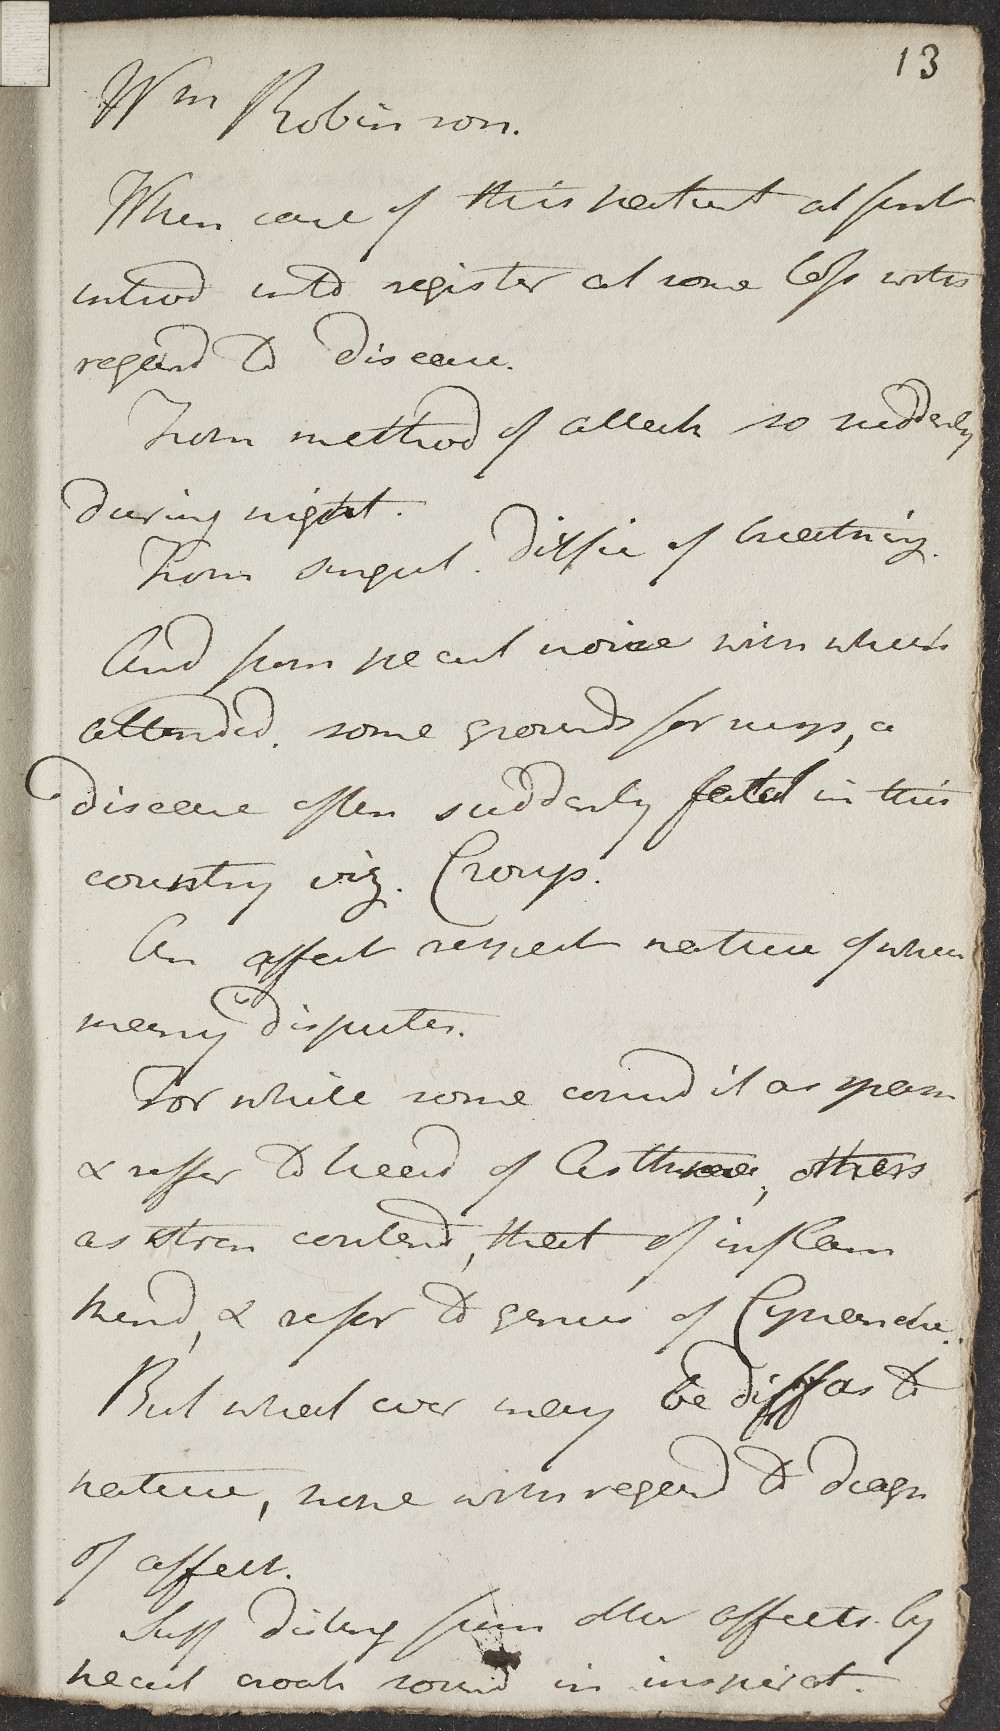 13
Wm Robinson.
When case of this patient at first
introd into register at some loss with
regard to disease.
From method of attack so suddenly
during night.
From singul. diffic of breathing.
And from pecul noise with which
attended. some grounds for susp, a
disease often suddenly fatal in this
country viz. Croup.
An affect respect nature of which
many disputes.
For while some consid it as spasm
& reffer to head of Asthmae, others
as stren contend, that of inflam
kend, & refer to genus of Cynanche.
But what ever may be diff as to
nature, none with regard to diagn
of affect.
Suff disting from other affects by
pecul croak sound in inspirat.